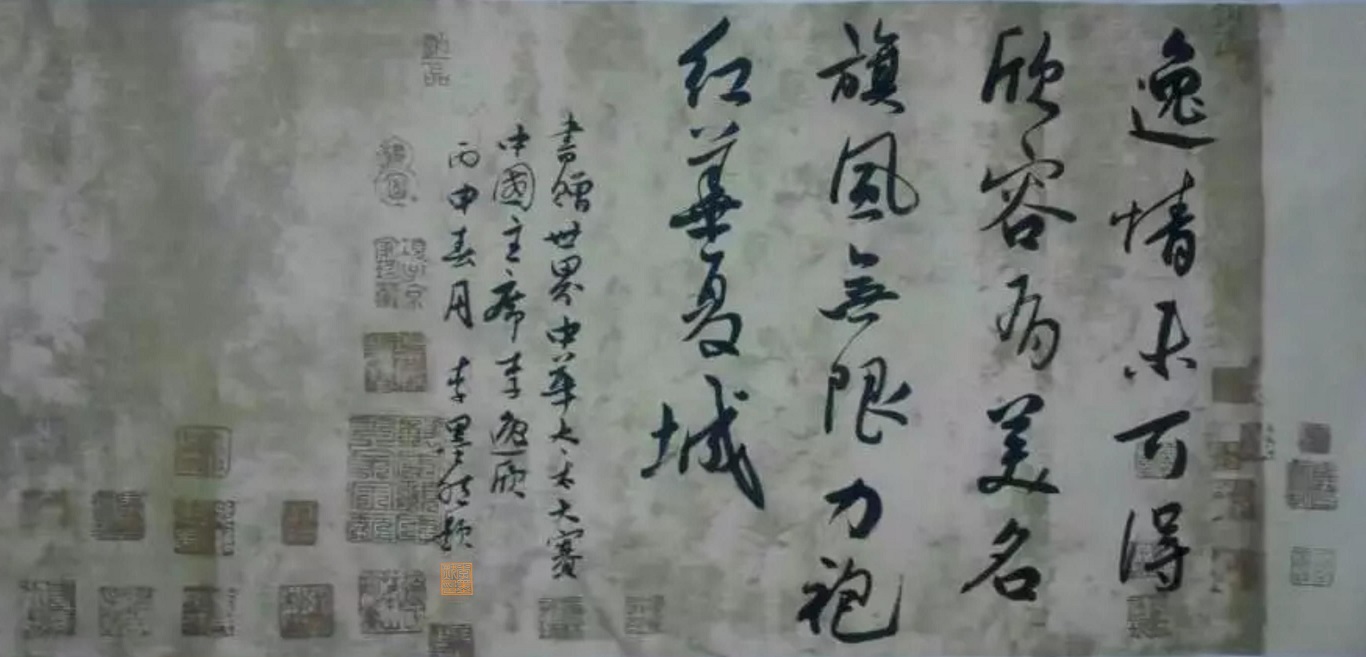 逸情未可得
欣容為美名
旗風無限力袍
紅華夏城
書贈世界中華太太大賽
中國主席李逸欣
丙申春月 李墨然題